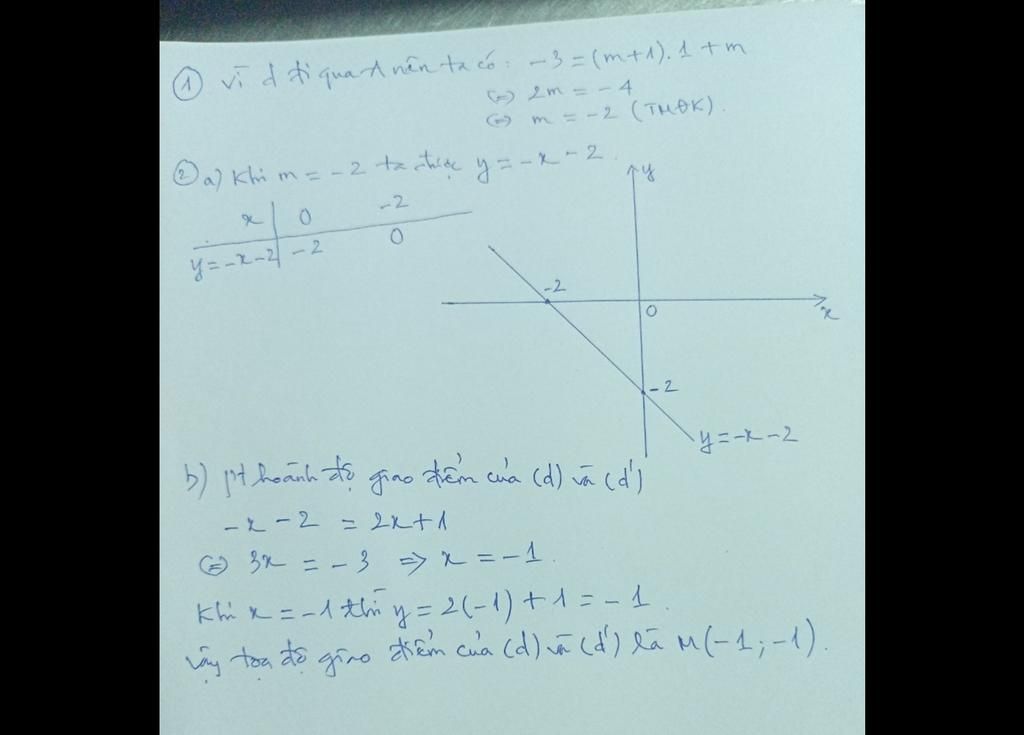 ① Vì d đi qua A nên ta có: -3 = (m+1).1 + m
⇔ 2m = -4
⇔ m = -2 (TMĐK).
② a) Khi m = -2 ta được y = -x - 2.
x | 0 -2
y = -x-2 | -2 0
y
-2
O
x
-2
y = -x - 2
b) pt hoành độ giao điểm của (d) và (d')
-x - 2 = 2x + 1
⇔ 3x = -3 ⇒ x = -1.
Khi x = -1 thì y = 2(-1) + 1 = -1.
Vậy tọa độ giao điểm của (d) và (d') là M(-1; -1).